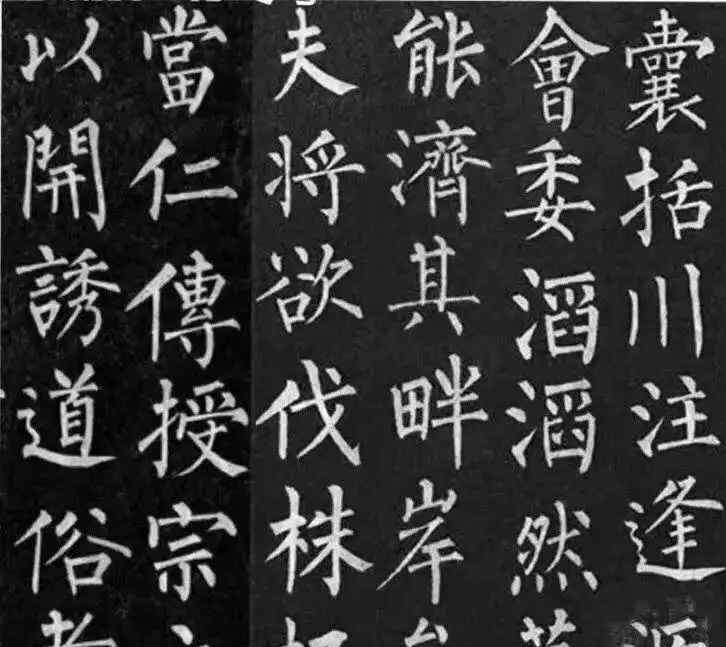 囊括川注逢
會委滔滔然
能濟其畔岸
夫將欲伐株
當仁傳授宗
以開誘道俗